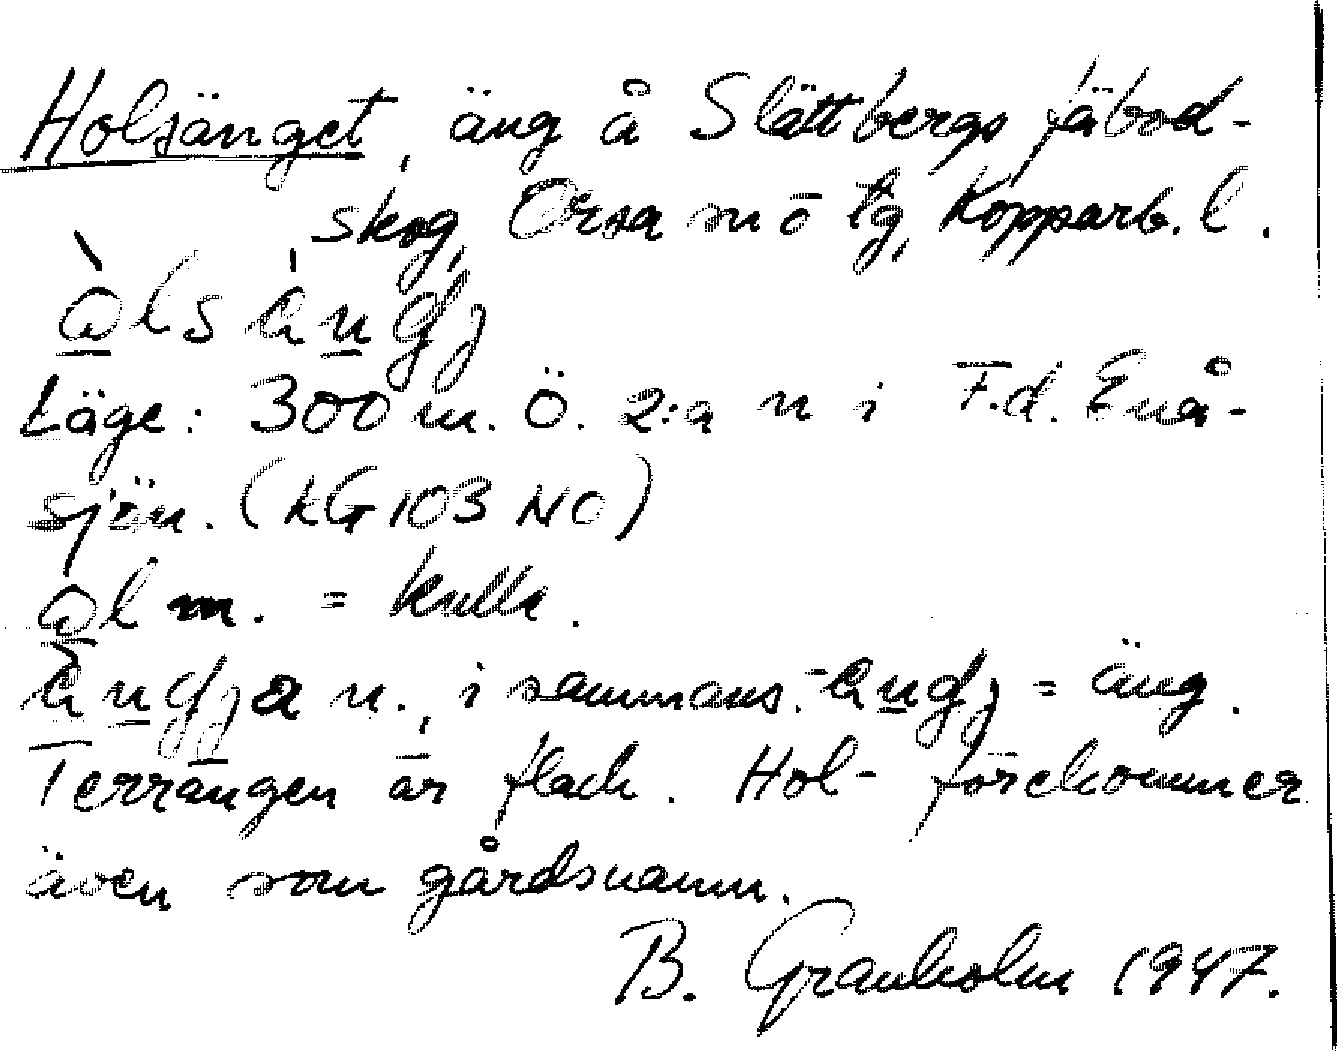 Holsänget, äng å Slättbergs fäbod-
skog, Orsa sn ö tg, Kopparb. l.
àlsáŋgj
Läge: 300 m. Ö. 2:a n i F.d. Enå-
sjön. (KG 103 NO)
al m. = kulle.
äŋgja n., i sammans. -äŋgj = äng.
Terrängen är flack. Hol- förekommer
även som gårdsnamn.
B. Granholm 1947.